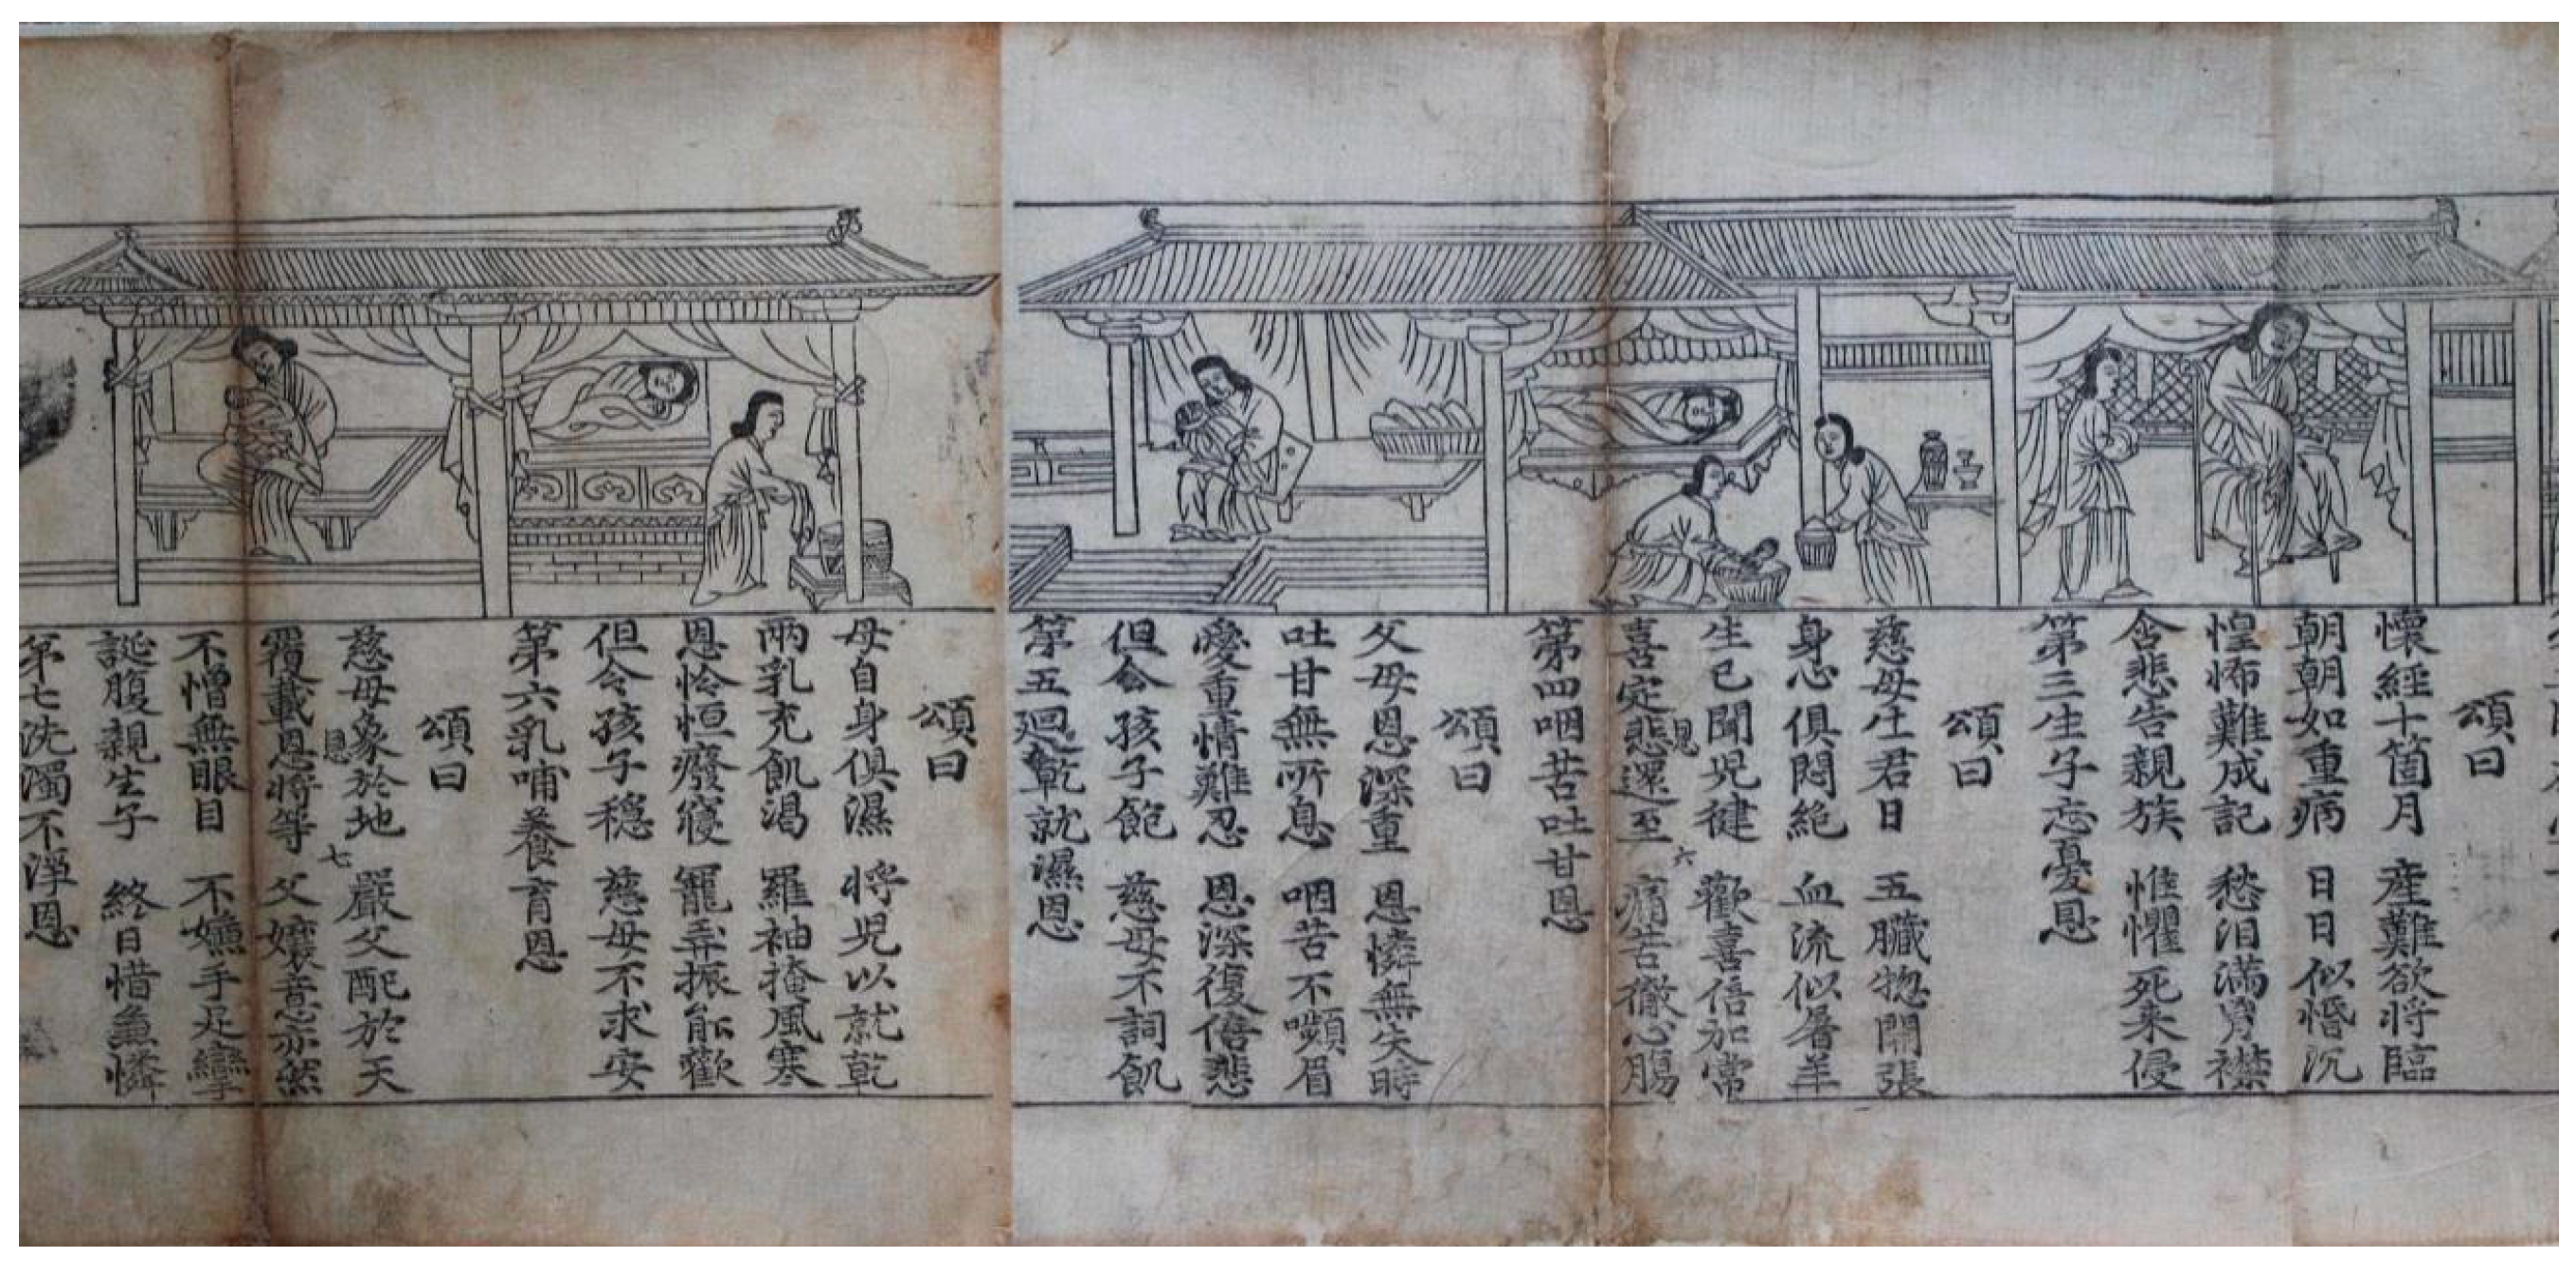 頌曰
懷經十箇月 産難欲将臨
朝朝如重病 日日似惛沉
惶怖難成記 愁淚滿胷襟
含悲告親族 惟懼死来侵
第三生子忘憂恩
頌曰
慈母生君日 五臟㧾開張
身心俱悶絶 血流似屠羊
生已聞児健 歡喜倍加常
恩 六
喜定悲還至 痛苦徹心膓
第四咽苦吐甘恩
頌曰
父母恩深重 恩憐無失時
吐甘無所息 咽苦不嚬眉
愛重情難忍 恩深復倍悲
但令孩子飽 慈母不詞飢
第五迴乾就濕恩
頌曰
母自身俱濕 将児以就乾
兩乳充飢渴 羅袖掩風寒
恩怜恒癈寢 寵弄振能歡
但令孩子穏 慈母不求安
第六乳哺養育恩
頌曰
慈母象於地 嚴父配於天
恩 七
覆載恩将等 父孃意亦然
不憎無眼目 不嫌手足攣
誕腹親生子 終日惜兼憐
第七洗濁不淨恩